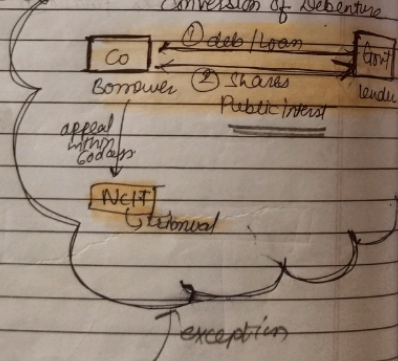 Conversion of Debenture
① deb/Loan
Co
Govt
Borrower
② Shares
lender
Public interst
appeal
within
60 days
NCLT
↳ tribunal
exception